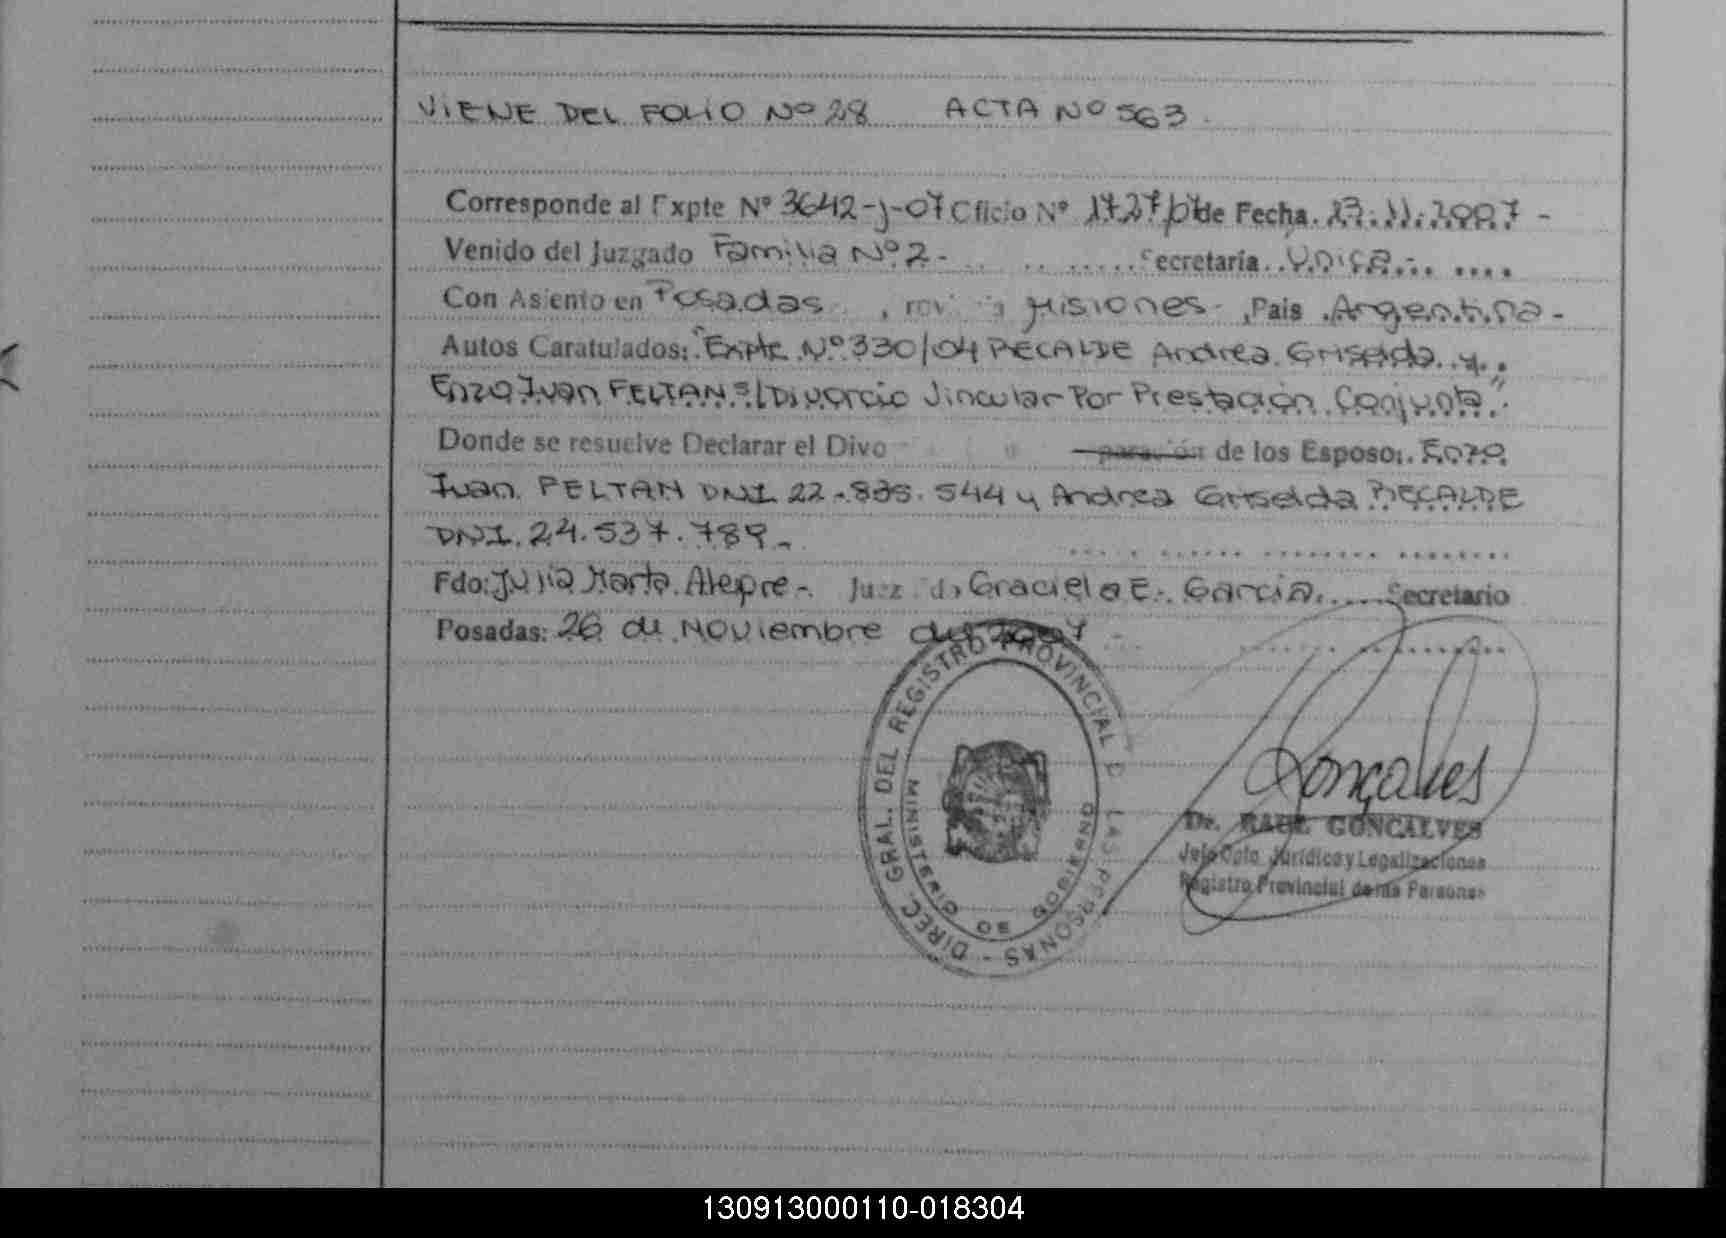 VIENE DEL FOLIO Nº 28 ACTA Nº 563.
Corresponde al Expte Nº 3642-J-07 Oficio Nº 1727/07 de Fecha. 13.11.2007-
Venido del Juzgado Familia Nº 2- Secretaría Unica-
Con Asiento en Posadas, Misiones-, Pais Argentina-
Autos Caratulados: "Expte Nº 330/04 RECALDE Andrea Griselda y
Enzo Ivan FELTAN S/Divorcio Vincular Por Prestación Conjunta"
Donde se resuelve Declarar el Divo de los Esposo: Enzo
Ivan PELTAN DNI 22.835.544 y Andrea Griselda RECALDE
DNI. 24.537.789-
Fdo: Julia Marta Alegre- Juez Graciela E. Garcia Secretario
Posadas: 26 de Noviembre de 2007
DIREC. GRAL. DEL REGISTRO PROVINCIAL D LAS PERSONAS -
MINISTERIO DE GOBIERNO
Gonçalves
Dr. RAUL GONCALVES
Jefe Dpto. Jurídico y Legalizaciones
Registro Provincial de las Personas
130913000110-018304